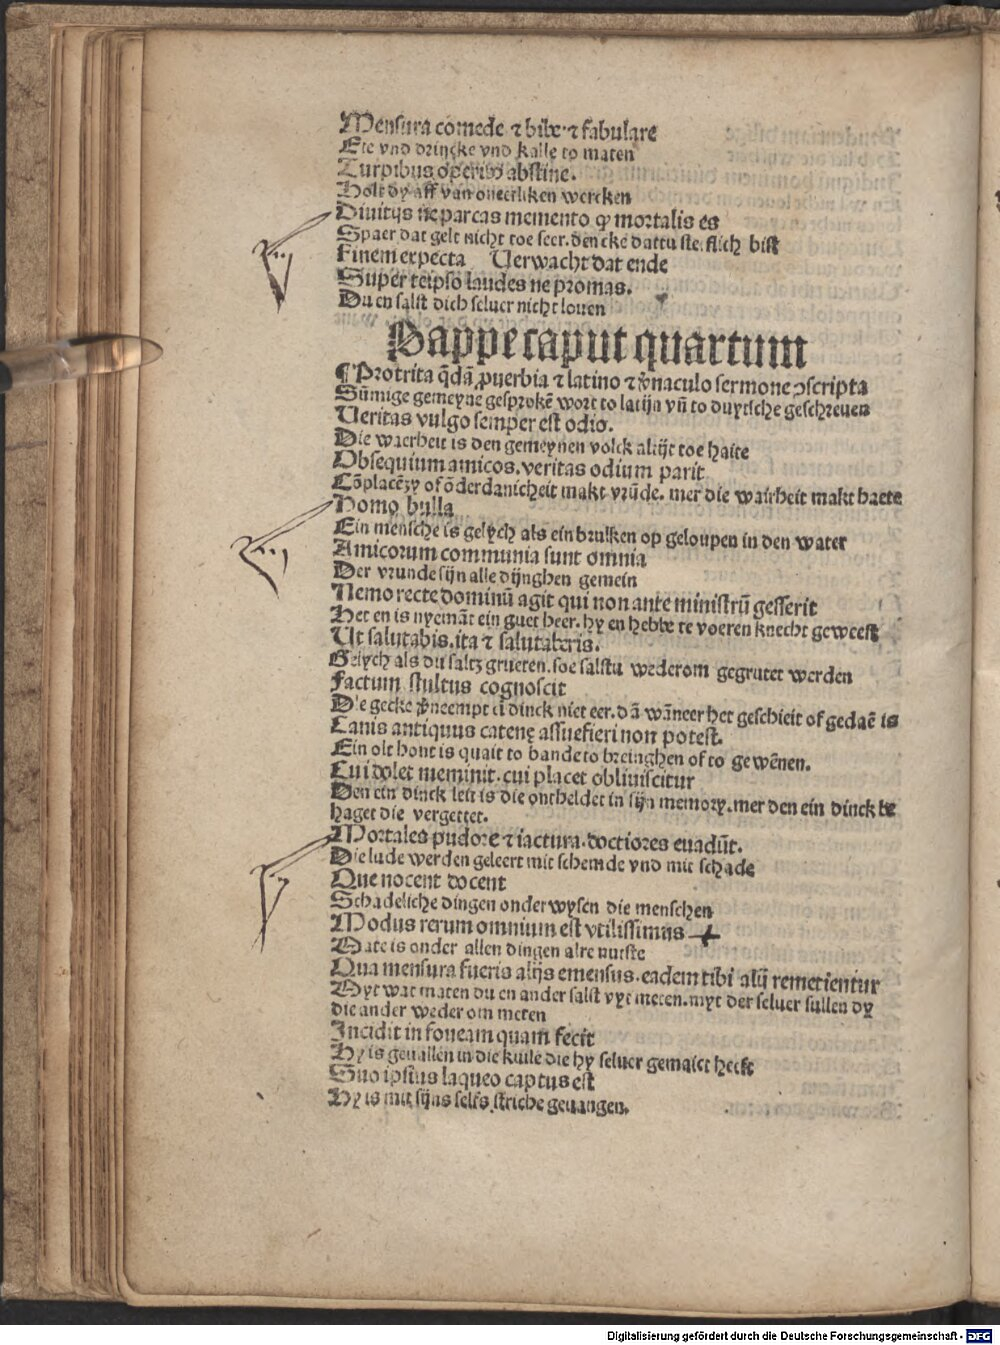 Mensura comede ⁊ bibe ⁊ fabulare
Ete vnd drincke vnd kalle to maten
Turpibus operibꝰ abstine.
Holt dy aff van oneerliken wercken
Diuitijs ne parcas memento ꝙ mortalis es
Spaer dat gelt nicht toe seer. dencke dattu sterflich bist
Finem expecta Verwacht dat ende
Super teipso laudes ne promas.
Du en salst dich seluer nicht louen
Pappe caput quartum
¶ Protrita q̄dā ꝓuerbia ⁊ latino ⁊ v̓naculo sermone ↄscripta
Sūmige gemeyne gesprokē wort to latijn vn̄ to duytsche geschreuen
Veritas vulgo semper est odio.
Die waerheit is den gemeynen volck altijt toe haite
Obsequium amicos. veritas odium parit
Cōplacēzy of ōderdanicheit makt vrūde. mer die wairheit makt haete
Homo bulla
Ein mensche is gelych als ein brulken op geloupen in den water
Amicorum communia sunt omnia
Der vrunde sijn alle dijnghen gemein
Nemo recte dominū agit qui non ante ministrū gesserit
Het en is nyemāt ein guet heer. hy en hebbe te voeren knecht geweest
Ut salutabis. ita ⁊ salutaberis.
Gelych als du saltz grueten. soe salstu wederom gegrutet werden
Factum stultus cognoscit
Die gecke v̓neempt ei dinck niet eer. dā wāneer het geschieit of gedaē is
Canis antiquus catenę assuefieri non potest.
Ein olt hont is quait to bande to breinghen of to gewēnen.
Cui dolet meminit. cui placet obliuiscitur
Den ein dinck leit is die ontheldet in sijn memory. mer den ein dinck be
haget die vergettet.
Mortales pudore ⁊ iactura. doctiores euadūt.
Die lude werden geleert mit schemde vnd mit schade
Que nocent docent
Schadeliche dingen onderwysen die menschen
Modus rerum omnium est vtilissimus
Mate is onder allen dingen alre nutste
Qua mensura fueris alijs emensus. eadem tibi alij remetientur
Myt wat maten du en ander salst vyt meten. myt der seluer sullen dy
die ander weder om meten
Incidit in foueam quam fecit
Hy is geuallen in die kuile die hy seluer gemaict heeft
Suo ipsius laqueo captus est
Hy is mit sijns selfs striche geuangen.
Digitalisierung gefördert durch die Deutsche Forschungsgemeinschaft - DFG